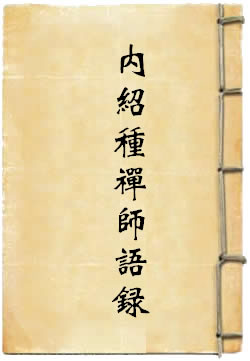 内紹種禪師語録